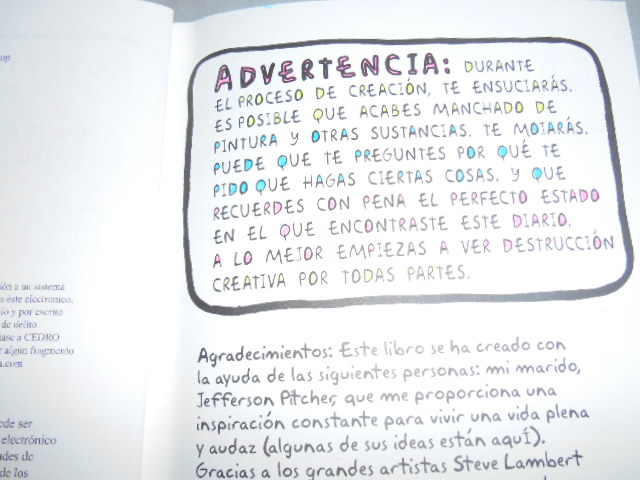 ión a un sistema
a éste electrónico,
io y por escrito
de delito
ase a CEDRO
r algún fragmento
a.com
ede ser
electrónico
ades de
de los
ADVERTENCIA: DURANTE
EL PROCESO DE CREACIÓN, TE ENSUCIARÁS.
ES POSIBLE QUE ACABES MANCHADO DE
PINTURA Y OTRAS SUSTANCIAS. TE MOJARÁS.
PUEDE QUE TE PREGUNTES POR QUÉ TE
PIDO QUE HAGAS CIERTAS COSAS. Y QUE
RECUERDES CON PENA EL PERFECTO ESTADO
EN EL QUE ENCONTRASTE ESTE DIARIO.
A LO MEJOR EMPIEZAS A VER DESTRUCCIÓN
CREATIVA POR TODAS PARTES.
Agradecimientos: Este libro se ha creado con
la ayuda de las siguientes personas: mi marido,
Jefferson Pitcher, que me proporciona una
inspiración constante para vivir una vida plena
y audaz (algunas de sus ideas están aquí).
Gracias a los grandes artistas Steve Lambert